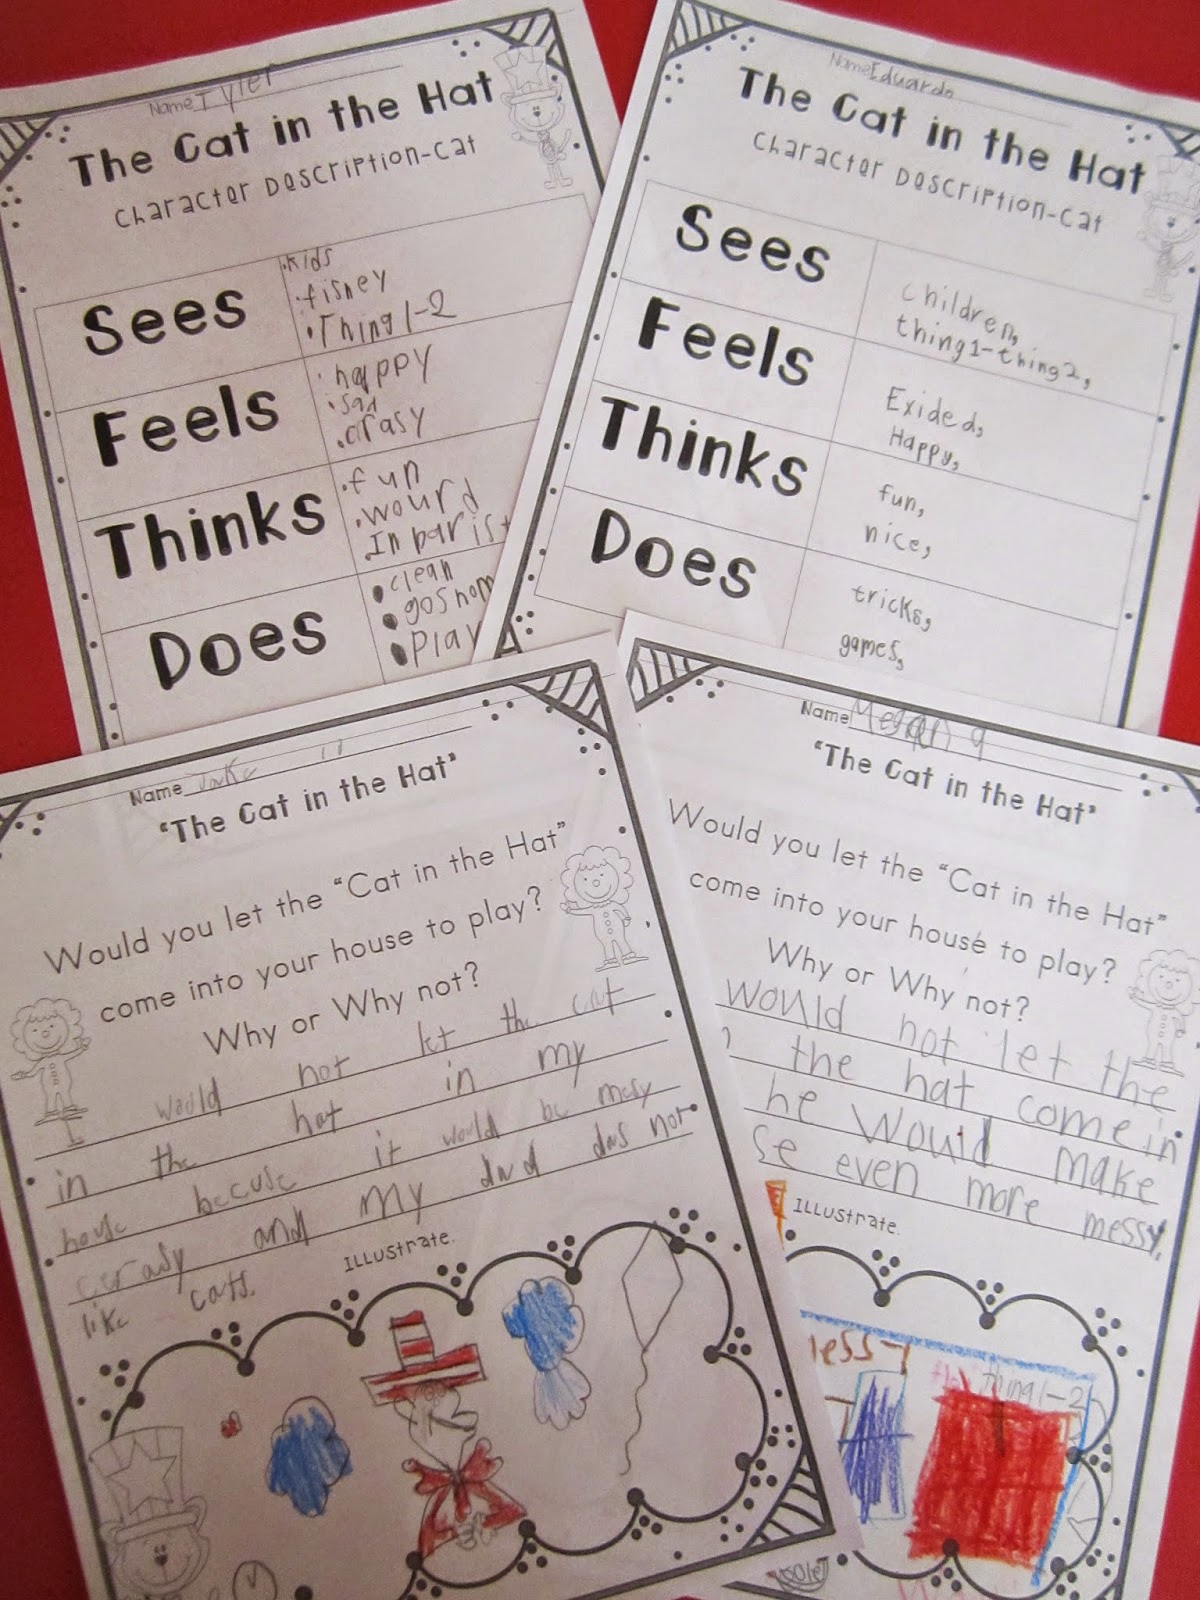 Name Tyler
The Cat in the Hat
Character Description-Cat
Sees
.kids
.fisney
.Thing 1-2
Feels
.happy
.sad
.crasy
Thinks
.fun
.wourd
.In bar ist
Does
.clean
.gos hom
.play
Name Eduardo
The Cat in the Hat
Character Description-Cat
Sees
children,
thing1-thing2,
Feels
Exided,
Happy,
Thinks
fun,
nice,
Does
tricks,
games,
Name Jake
"The Cat in the Hat"
Would you let the "Cat in the Hat"
come into your house to play?
Why or Why not?
would not let the cat
in the hat in my
house becuse it would be messy
cerasy and my dad das not
like cats.
Illustrate.
Name Megan 9
"The Cat in the Hat"
Would you let the "Cat in the Hat"
come into your house to play?
Why or Why not?
would not let the
the hat come in
he would make
se even more messy.
Illustrate.
thing 1-2